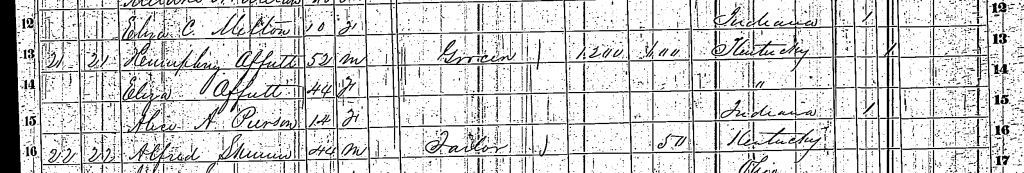 12 Eliza C. Melton 10 f Indiana 1 12
13 21 21 Humphrey Offutt 52 m Grocer 1 1.200 400 Kentucky 1 13
14 Eliza Offutt 44 f " 14
15 Alice A. Pierson 14 f Indiana 1 15
16 22 22 Alfred 44 m Tailor 1 50 Kentucky 16
Ohio 17